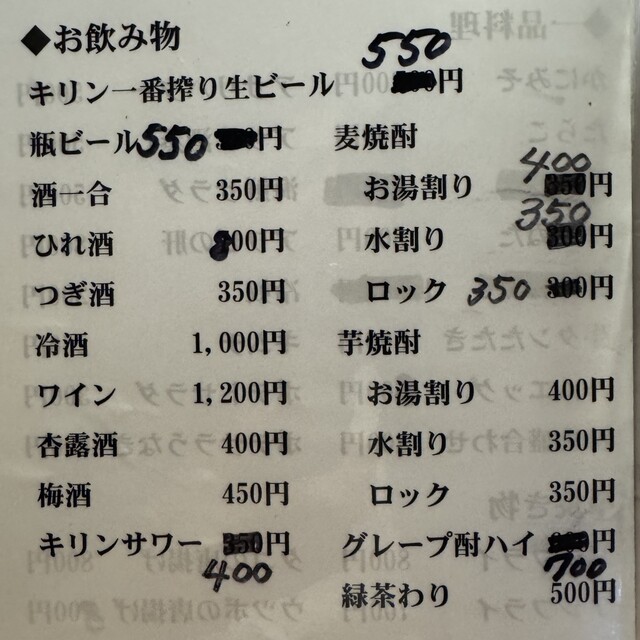 ◆お飲み物
キリン一番搾り生ビール 550円
瓶ビール 550円
酒一合 350円
ひれ酒 800円
つぎ酒 350円
冷酒 1,000円
ワイン 1,200円
杏露酒 400円
梅酒 450円
キリンサワー 350円
400
麦焼酎
お湯割り 400 350円
水割り 350 300円
ロック 350 300円
芋焼酎
お湯割り 400円
水割り 350円
ロック 350円
グレープ酎ハイ 円
700
緑茶わり 500円